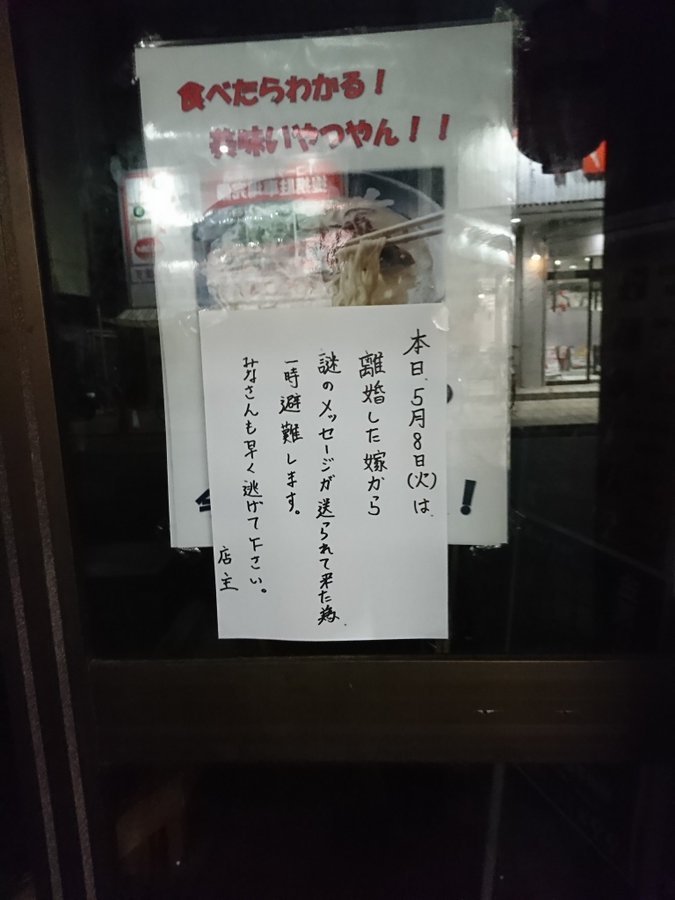 食べたらわかる!
美味いやつやん!!
本日、5月8日(火)は、
離婚した嫁から
謎のメッセージが送られて来た為、
一時避難します。
みなさんも早く逃げて下さい。
店主
!